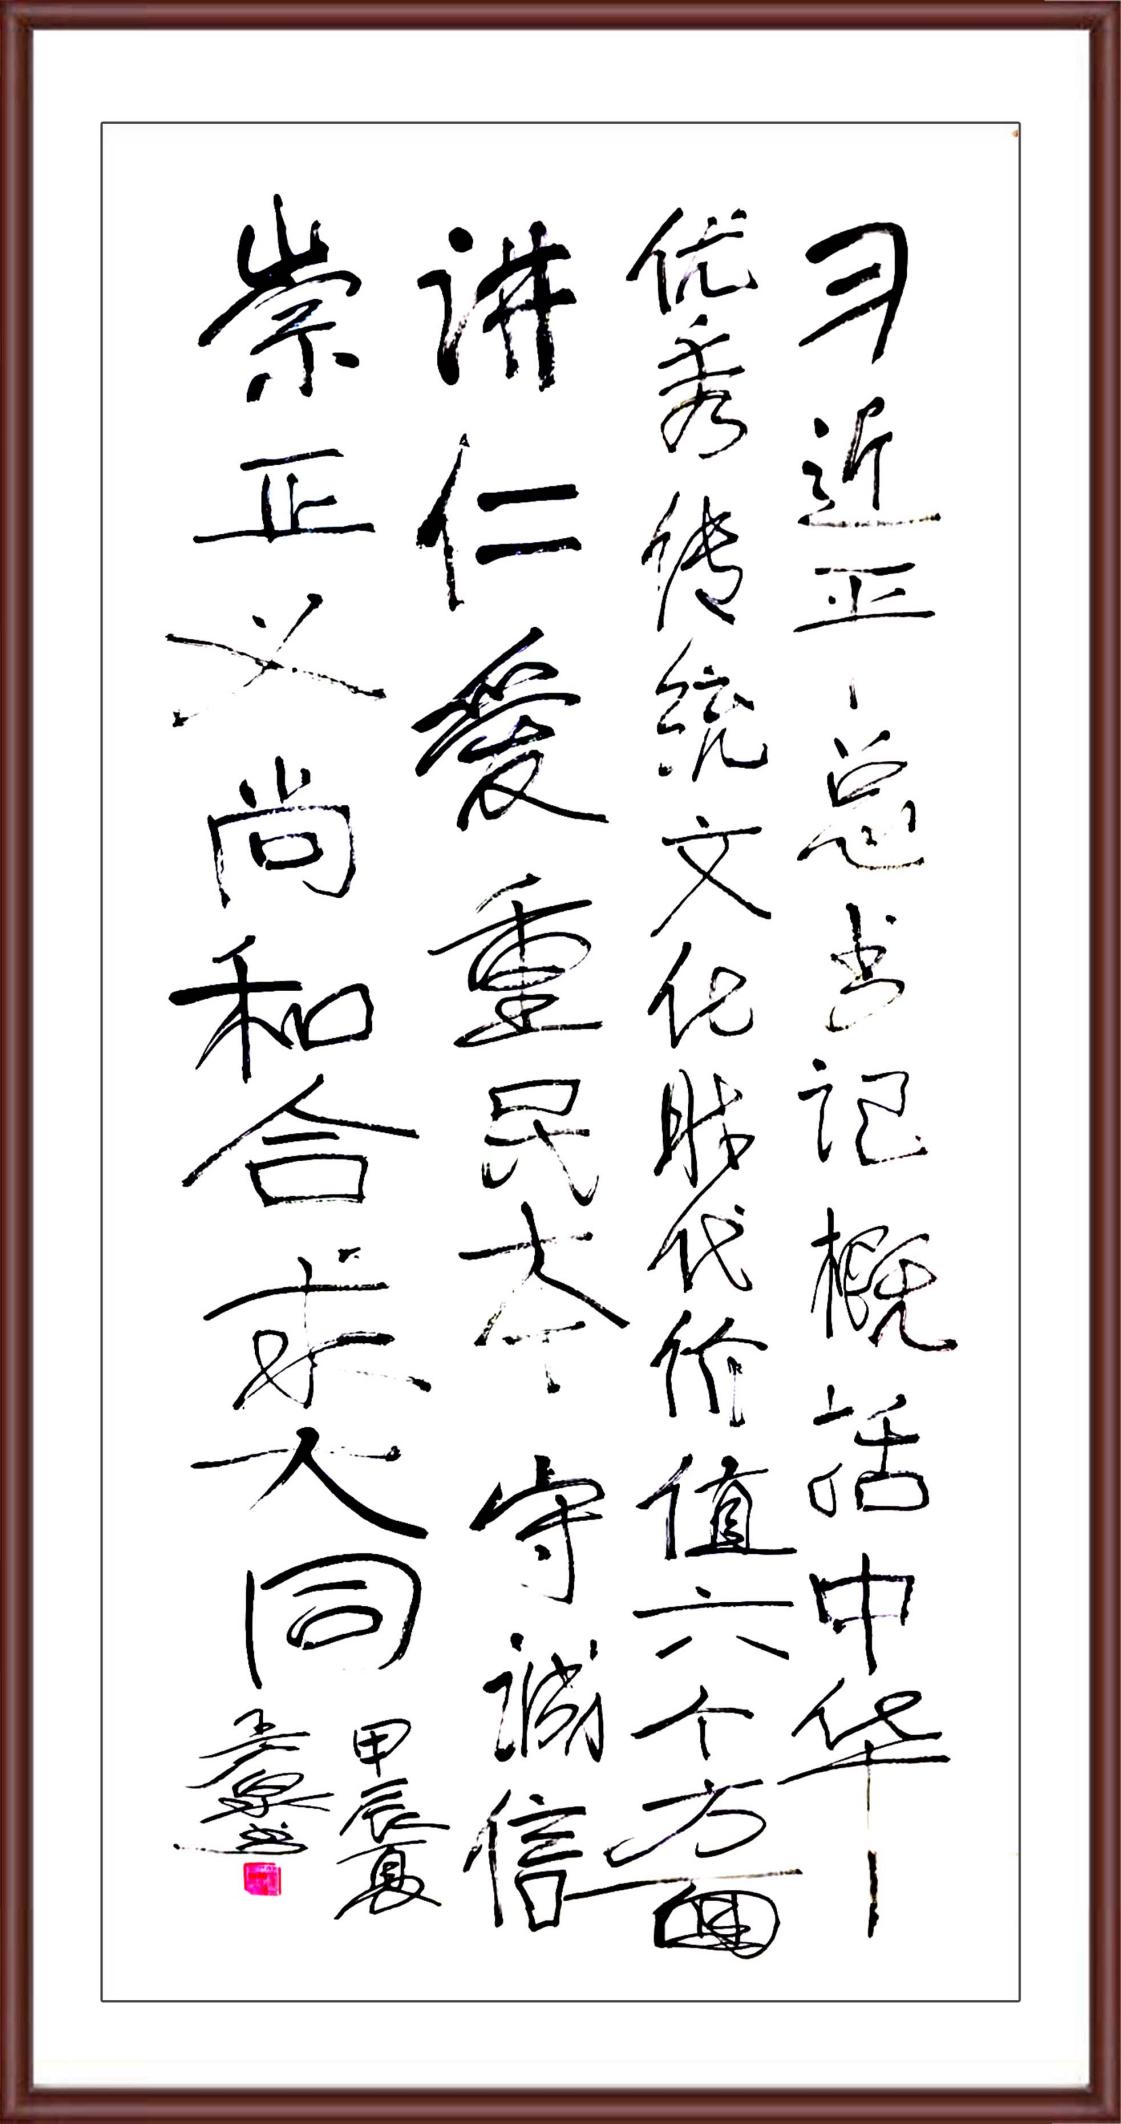 习近平总书记概括中华
优秀传统文化时代价值六个方面
讲仁爱重民本守诚信
崇正义尚和合求大同
甲辰夏
泉书